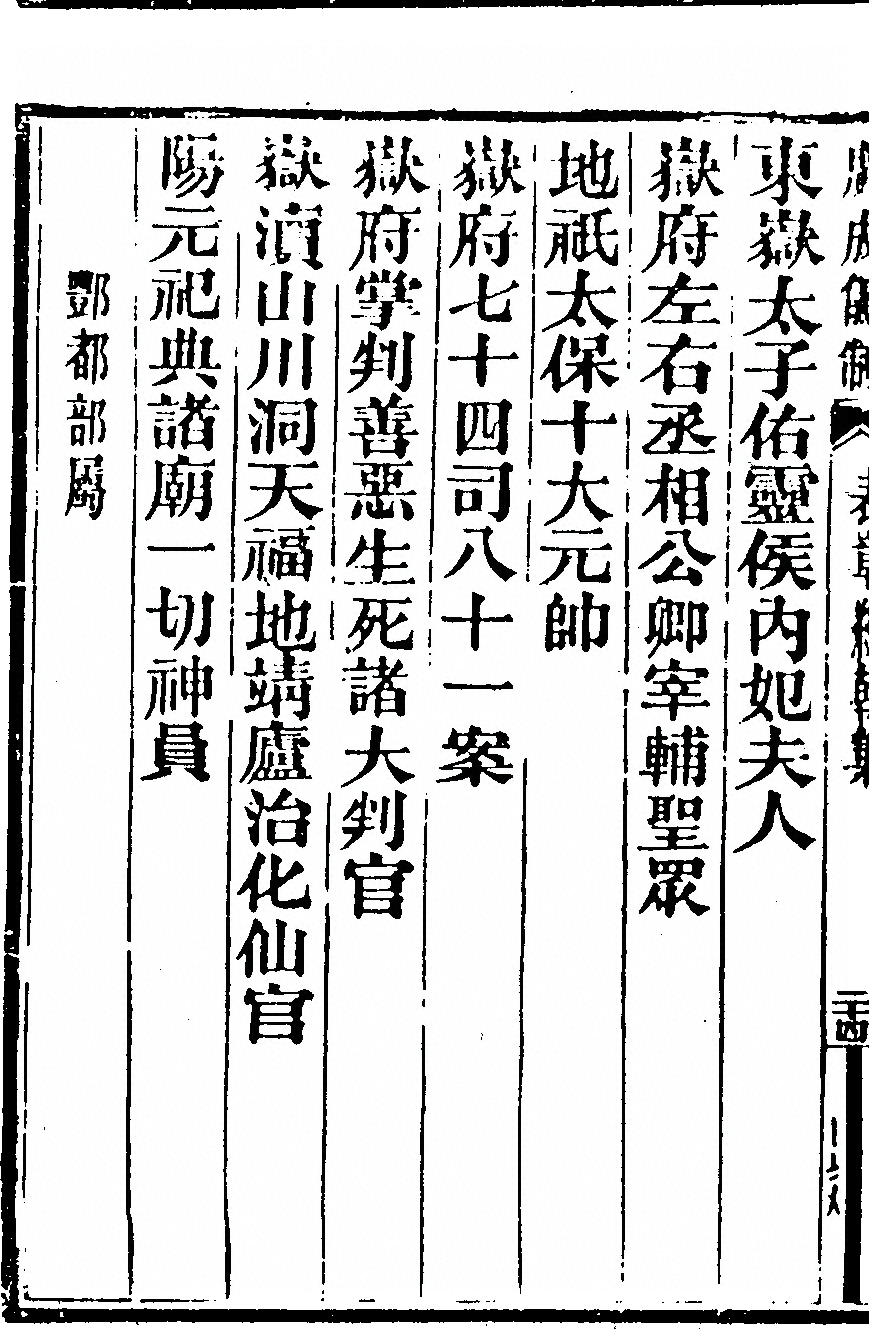 東嶽太子佑靈侯內妃夫人
嶽府左右丞相公卿宰輔聖眾
地祇太保十大元帥
嶽府七十四司八十一案
嶽府掌判善惡生死諸大判官
嶽瀆山川洞天福地靖廬治化仙官
陽元祀典諸廟一切神員
酆都部屬
二十四